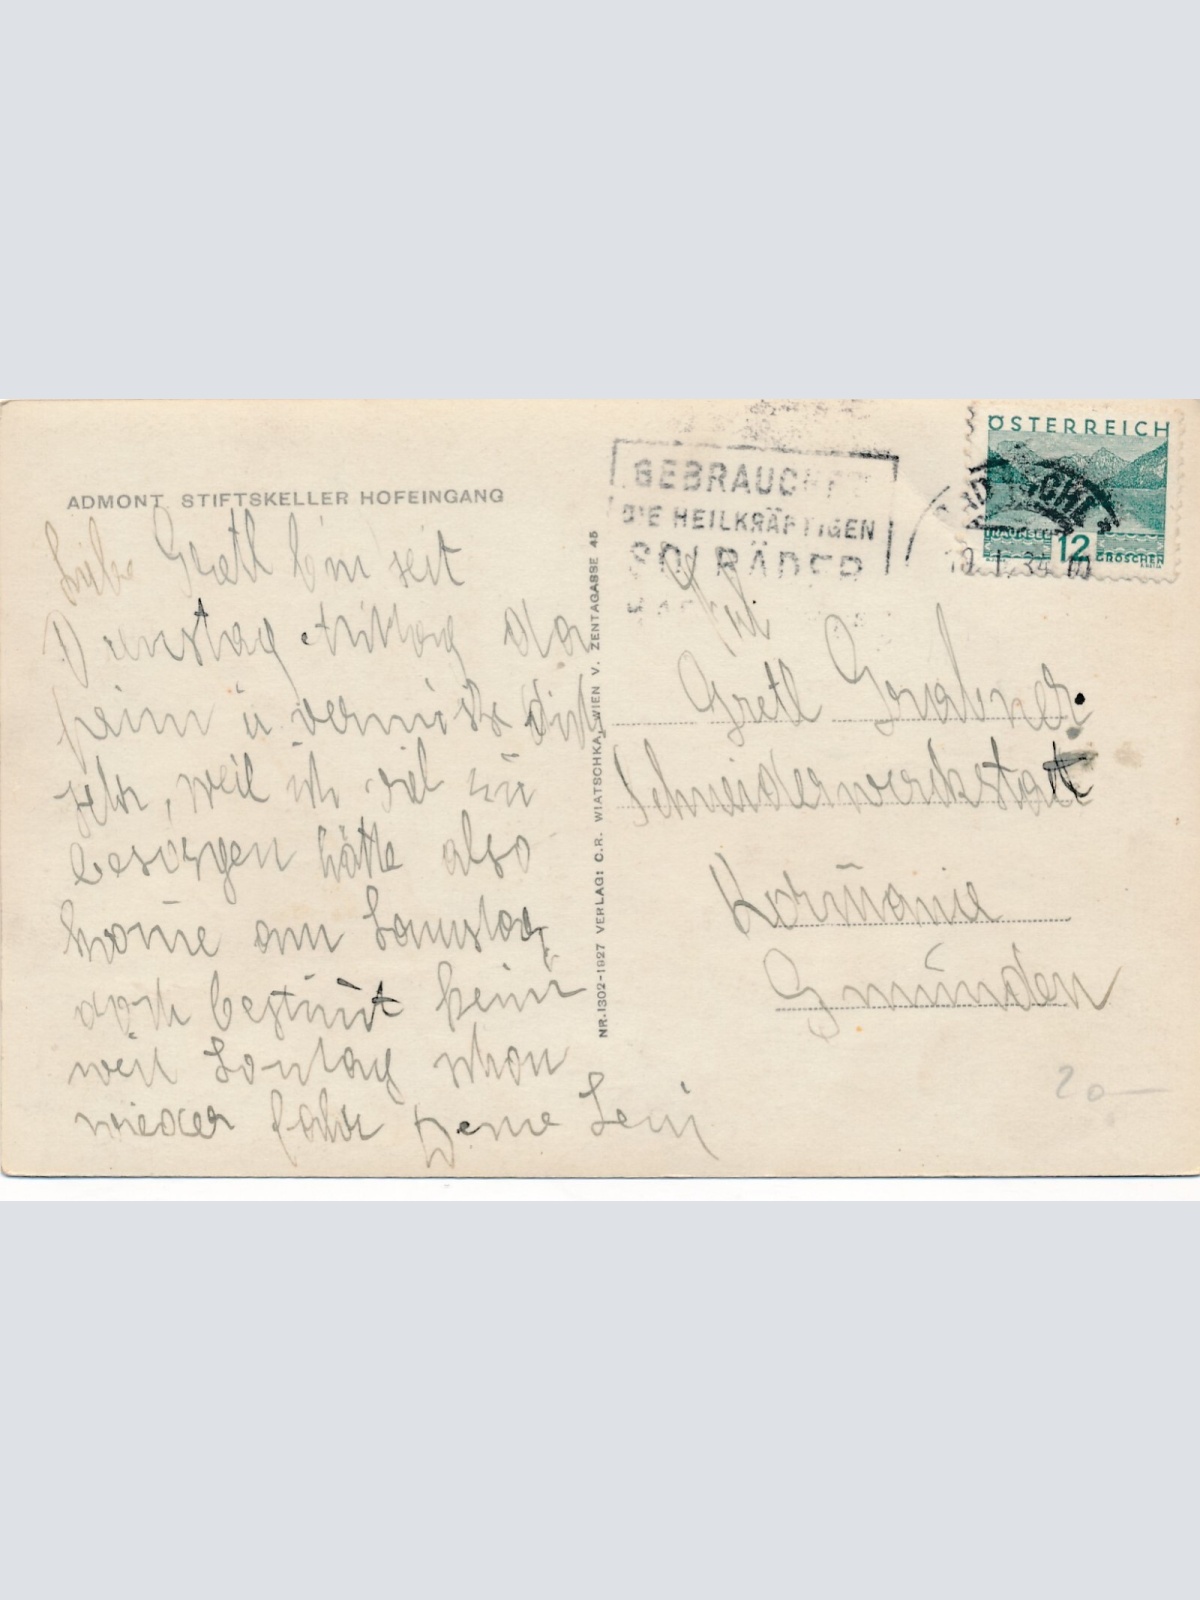 ADMONT STIFTSKELLER HOFEINGANG
Liebe Gretl bin seit
Dienstag mittag da
heim u vermiste dich
sehr, weil ich viel zu
besorgen hätte also
kome am Samstag
doch bestimt heim
weil Sontag schon
wieder fahr Deine Leni
NR. 1302-1927 VERLAG: C.R. WIATSCHKA, WIEN V. ZENTAGASSE 45
GEBRAUCHET
DIE HEILKRÄFTIGEN
SOLBÄDER
ÖSTERREICH
12
GROSCHEN
34
Frl
Gretl Grabner
Schneiderwerkstatt
Gmünden
20-